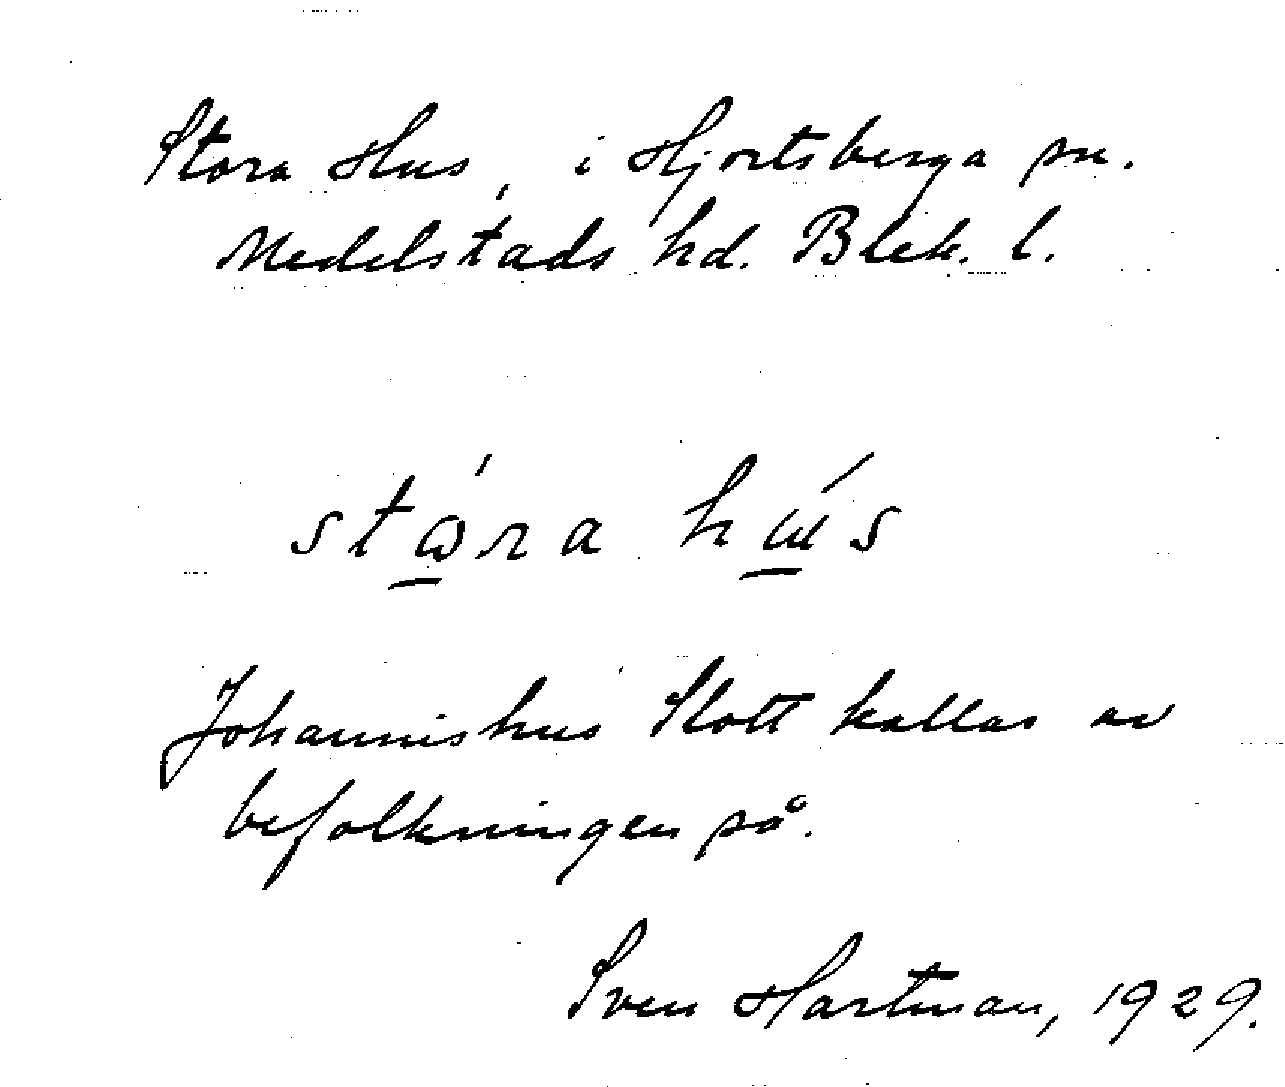 Stora Hus, i Hjortsberga sn.
Medelstads hd. Blek. l.
stɷ̱́ra hɯ̱́s
Johannishus Slott kallas av
befolkningen så.
Sven Hartman, 1929.